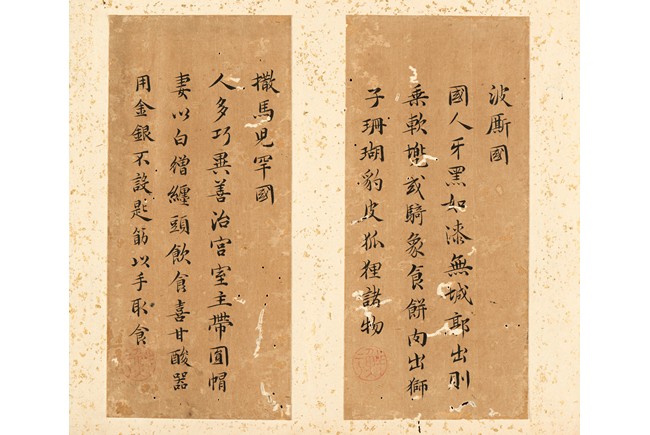 波厮國
國人牙黑如漆無城郭出則
乘軟兠或騎象食餅肉出獅
子珊瑚豹皮狐狸諸物
撒馬児罕國
人多巧異善治宫室主帶圎帽
妻以白繒纏頭飲食喜甘酸器
用金銀不設匙筯以手取食